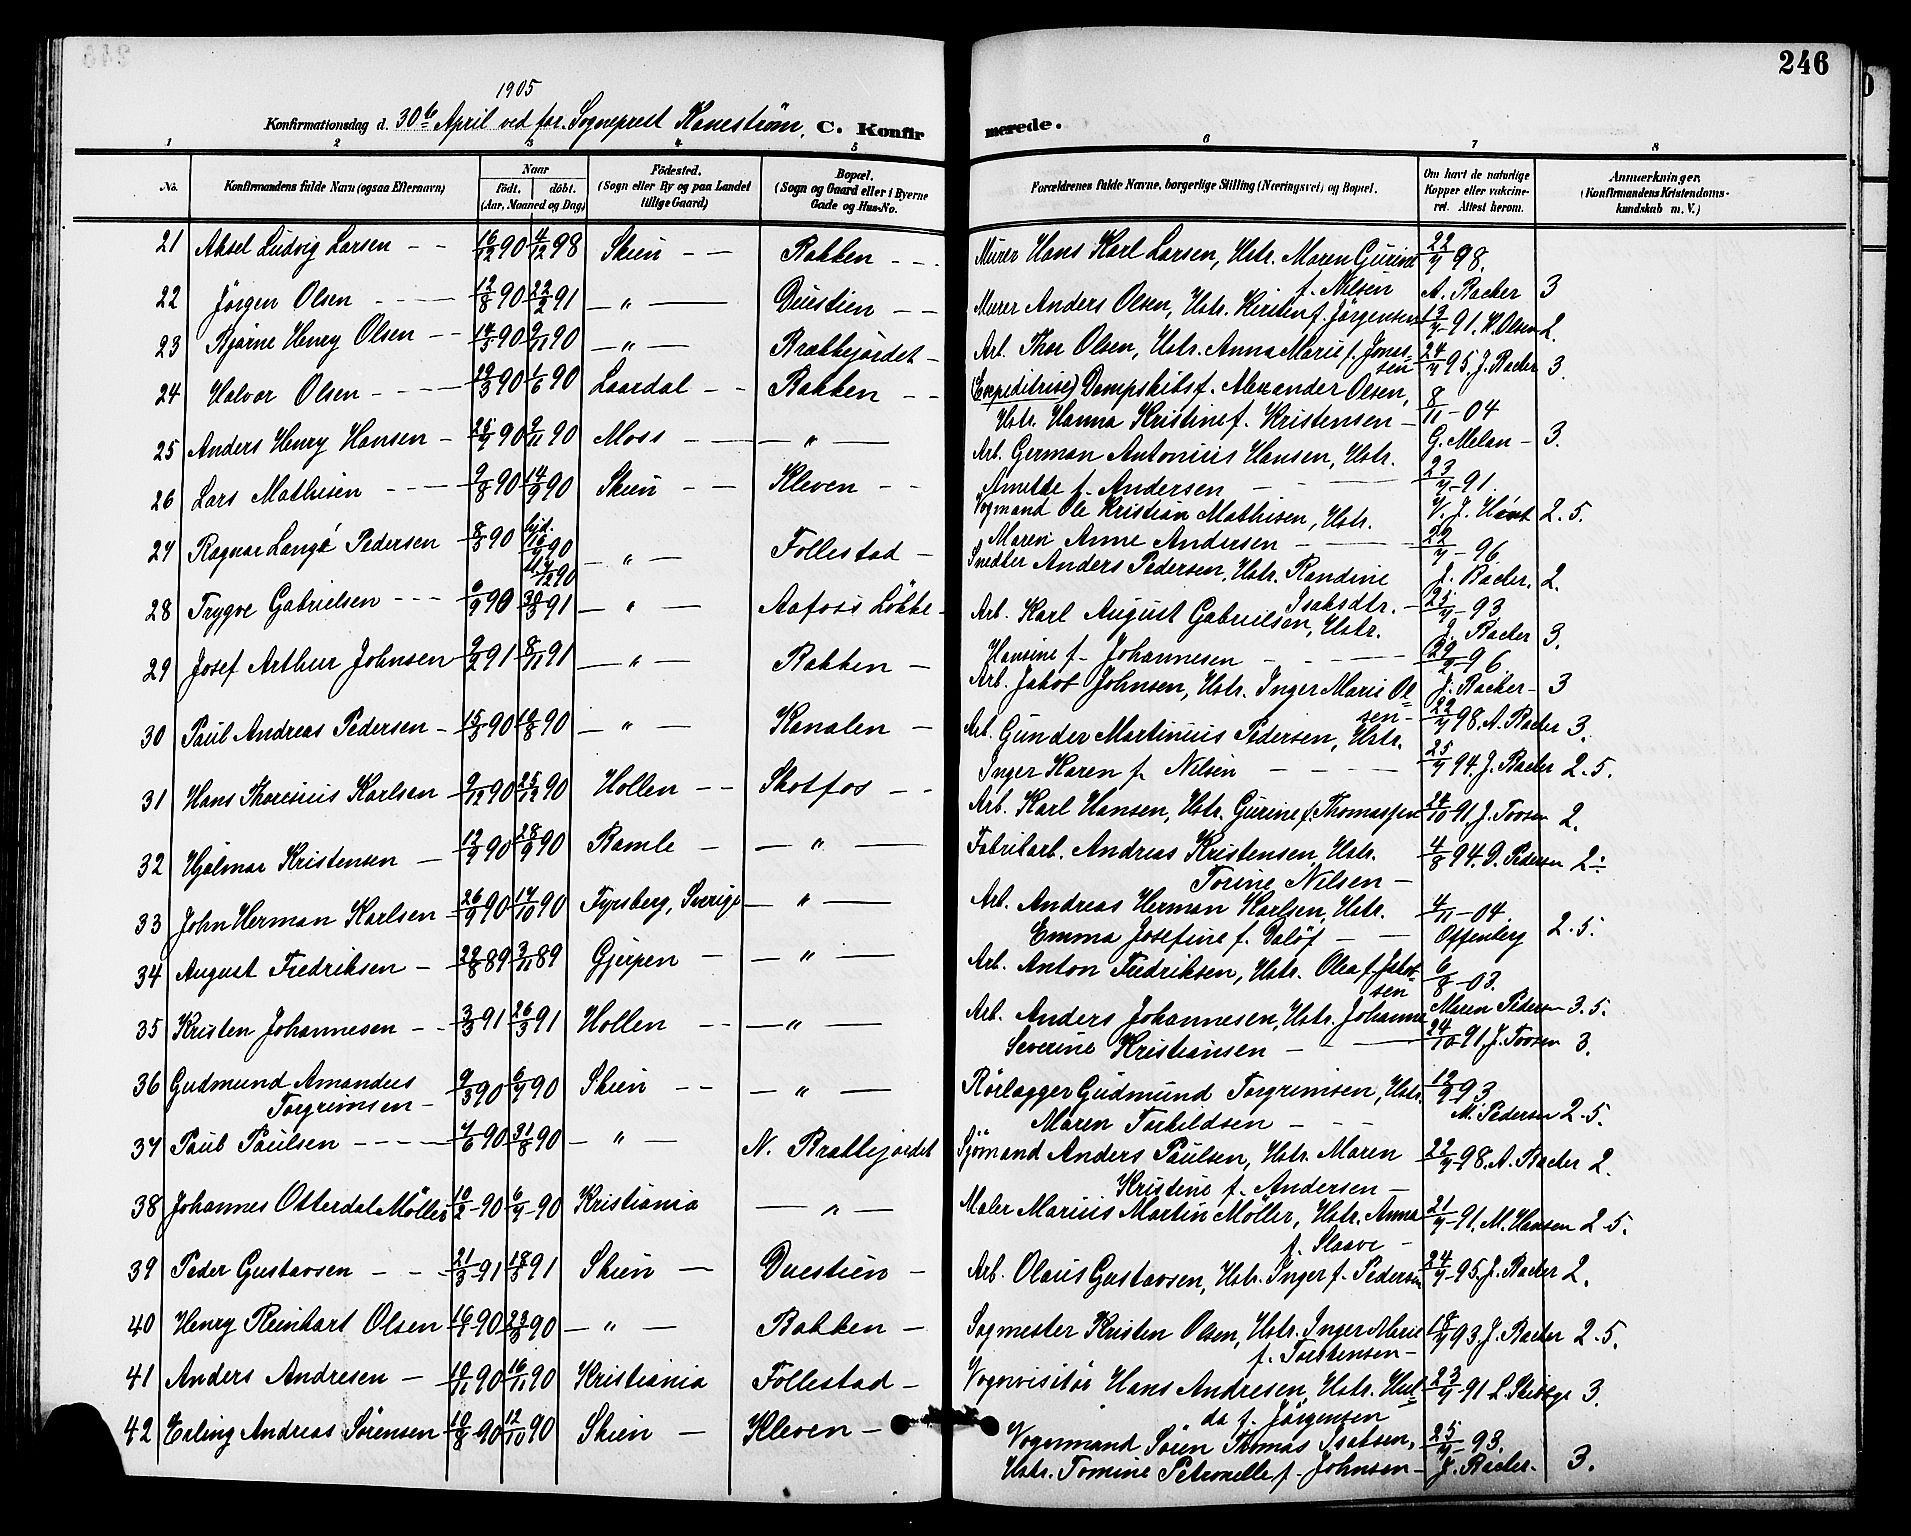 246
1905
Konfirmationsdag d. 30te April ved for. Sogneprest Kanestrøm, C. Konfirmerede.
1 2 3 4 5 6 7 8
No. | Konfirmandens fulde Navn (ogsaa Efternavn) | Naar födt. döbt. (Aar, Maaned og Dag) | Födested. (Sogn eller By og paa Landet tillige Gaard) | Bopæl. (Sogn og Gaard eller i Byerne Gade og Hus-No. | Forældrenes fulde Navne, borgerlige Stilling (Næringsvei) og Bopæl. | Om havt de naturlige Kopper eller vakcineret. Attest herom. | Anmerkninger. (Konfirmandens Kristendomskundskab m. V.)
21 Aksel Ludvig Larsen - - 16/12 90 4/12 98 Skien - - Bakken - - - Murer Hans Karl Larsen, Hstr. Maren Gurine f. Nilsen 22/7 98. A. Backer 3
22 Jörgen Olsen - - - 12/8 90 22/2 91 - " - Duestien - - Murer Anders Olsen, Hstr. Kirsten f. Jörgensen 13/7 - 91. K. Olsen 2.
23 Bjarne Henry Olsen - - 14/3 90 9/11 90 - " - Brattejordet - Arb. Thor Olsen, Hstr. Anna Marie f. Jonassen 24/7 95. J. Backer 3.
24 Halvor Olsen - - - 19/3 90 1/6 90 Laardal - - Bakken - - (Expeditrise) Dampskibsf. Alexander Olsen, Hstr. Hanna Kristine f. Kristensen - 8/11 - 04 G. Melan - 3.
25 Anders Henry Hansen - 25/7 90 9/11 90 Moss - - - " - Arb. German Antonius Hansen, Hstr. Anette f. Andersen - 23/7 - 91. J. 2.5.
26 Lars Mathisen - - - 9/8 90 14/9 90 Skien - - Kleven - - Vogmand Ole Kristian Mathisen, Hstr. Maren Anne Andersen - 22/7 - 96 J. Backer. 2.
27 Ragnar Langé Pedersen 8/3 90 hjd. 90 90 - " - Follestad - Snedker Anders Pedersen, Hstr. Randine Isaksdtr. - 25/7 - 93 J. Backer 3.
28 Trygve Gabrielsen - - - 6/9 90 30/3 91 - " - Aafoss Lökke - Arb. Karl August Gabrielsen, Hstr. Hansine f. Johannesen - 29/2 96 J. Backer - 3
29 Josef Arthur Johnsen 9/2 91 8/11 91 - " - Bakken - Arb. Jakob Johnsen, Hstr. Inger Marie Olsen - 22/7 98. A. Backer 3.
30 Paul Andreas Pedersen - 15/3 90 10/8 90 - " - Kanalen - Arb. Gunder Martinius Pedersen, Hstr. Inger Karen f. Nilsen - 25/7 94. J. Backer 2.5.
31 Hans Thoresius Karlsen - 9/12 90 25/12 90 Hollen - - Skotfos - - Arb. Karl Hansen, Hstr. Gurine f. Thomassen 24/10 91. J. Tvosen 2.
32 Hjalmar Kristensen - 13/9 90 28/9 90 Bamle - - " - Fabrikarb. Andreas Kristensen, Hstr. Torine Nilsen - 4/8 94. D. Pedersen 2 ÷
33 John Herman Karlsen - 26/9 90 17/10 90 Fyrsberg, Sverige - " - Arb. Andreas Herman Karlsen, Hstr. Emma Josefine f. - 4/11 - 04. Offenberg 2.5.
34 August Fredriksen - 22/8 89 3/11 89 Gjerpen - - " - Arb. Anton Fredriksen, Hstr. Olea f. Jakobsen 6/8 - 03. Maren Pedersen 3.5.
35 Kristen Johannesen - - 3/3 91 26/3 91 Hollen - - - " - Arb. Anders Johannesen, Hstr. Johanne Severine Kristiansen - 24/10 - 91. J. Tvosen 3.
36 Gudmund Amandus Torgrimsen - 9/3 90 6/7 90 Skien - - - " - Rörlægger Gudmund Torgrimsen, Hstr. Maren Torkildsen - 12/9 93. M. Pedersen 2.5.
37 Paul Paulsen - - - 7/6 90 31/8 90 - " - N. Brattejordet Sjömand Anders Paulsen, Hstr. Maren Kristine f. Andersen - 22/7 - 98. A. Backer 2.
38 Johannes Otterdal Möller 10/2 - 90 6/7 - 90 Kristiania - " - Maler Marius Martin Möller, Hstr. Anna f. Slaave - 21/7 - 91. M. Hansen 2.5.
39 Peder Gustavsen - - 21/3 - 91 18/8 91 Skien - Duestien - Arb. Olaus Gustavsen, Hstr. Inger f. Pedersen 24/7 - 95. J. Backer 2.
40 Henry Reinhart Olsen 16/7 - 90 23/8 90 - " - Bakken - Sagmester Kristen Olsen, Hstr. Inger Marie f. Torstensen - 18/7 93. J. Backer 2.5.
41 Anders Andresen - 10/11 90 16/11 90 Kristiania Follestad - Vognvisitör Hans Andresen, Hstr. Hulda f. Jörgensen 23/7 - 91 L. 3.
42 Erling Andreas Sörensen 10/8 - 90 12/10 90 Skien - Kleven - Vognmand Sören Thomas Isaksen, Hstr. Tomine Petronelle f. Johnsen - 25/7 - 93. J. Backer. 3.